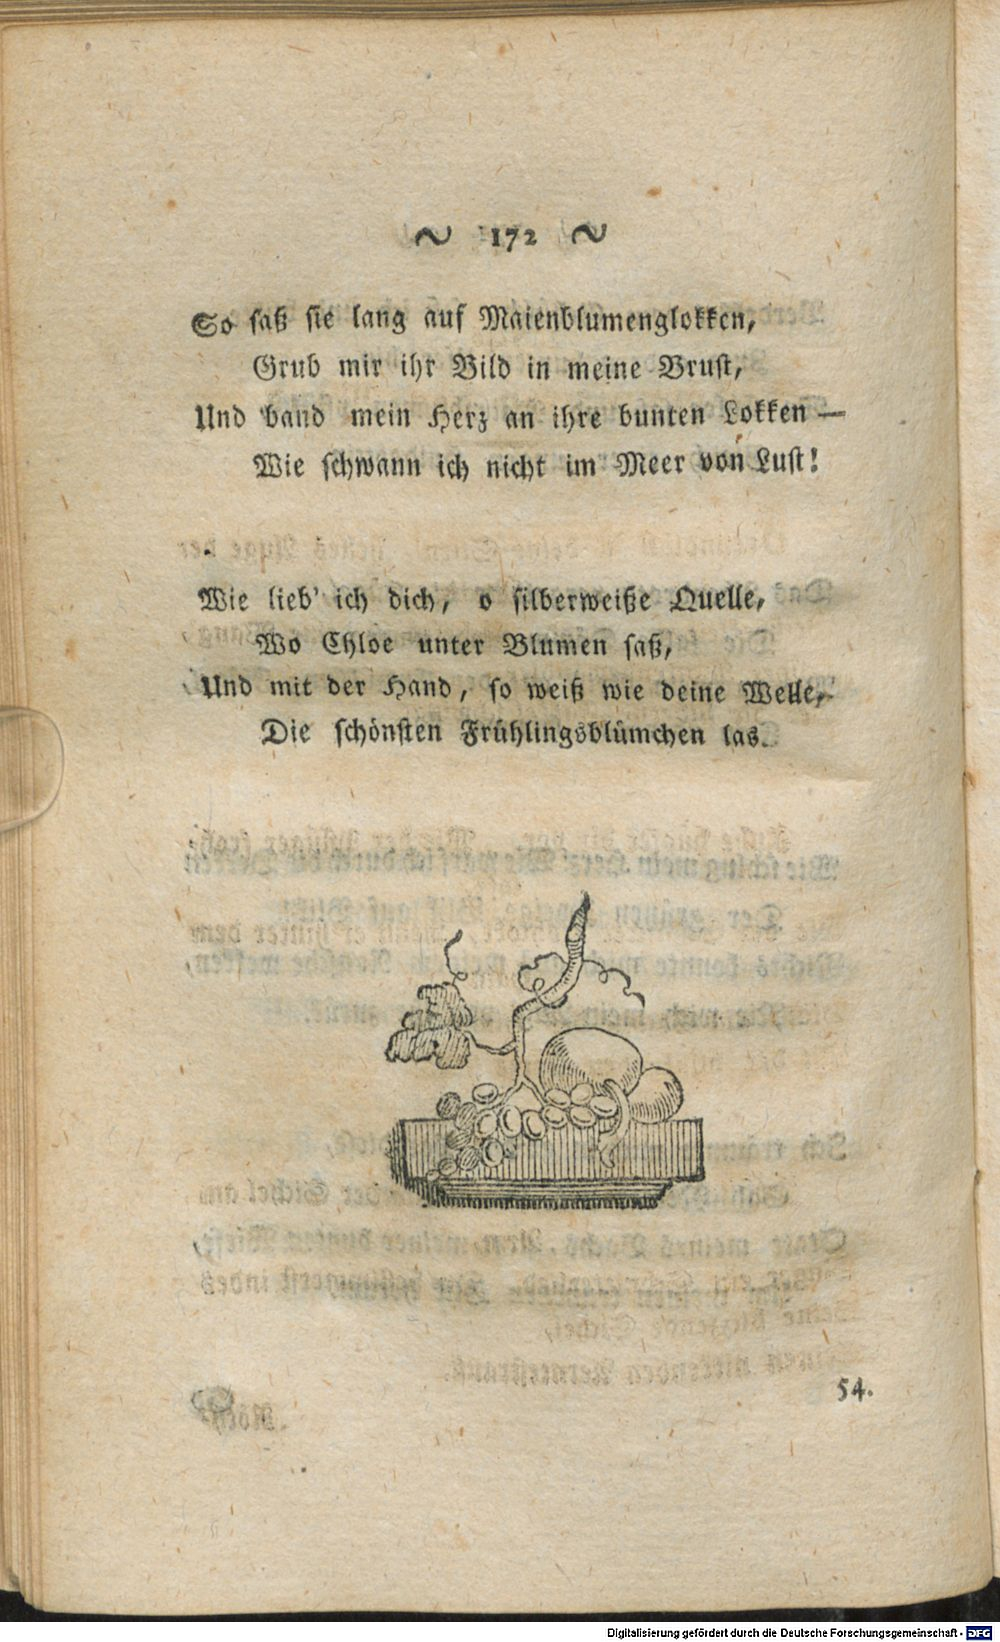 ~ 172 ~
So saß sie lang auf Maienblumenglokken,
Grub mir ihr Bild in meine Brust,
Und band mein Herz an ihre bunten Lokken —
Wie schwann ich nicht im Meer von Lust!
Wie lieb' ich dich, o silberweiße Quelle,
Wo Chloe unter Blumen saß,
Und mit der Hand, so weiß wie deine Welle,
Die schönsten Frühlingsblümchen las.
54.
Digitalisierung gefördert durch die Deutsche Forschungsgemeinschaft - DFG